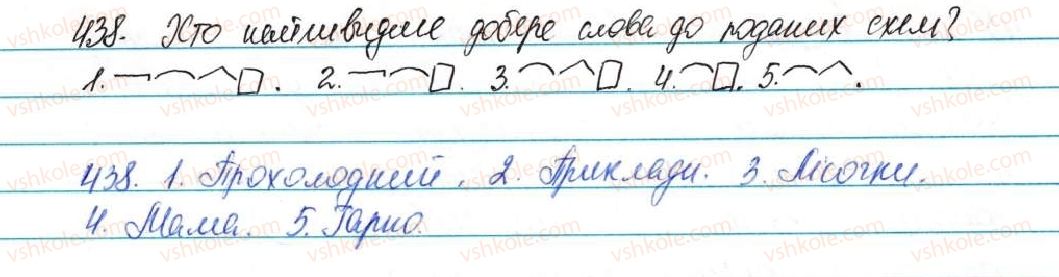 438. Хто найшвидше добере слова до поданих схем?
1. 2. 3. 4. 5.
438. 1. Прохолодний. 2. Приклади. 3. Лісочки.
4. Мама. 5. Гарно.